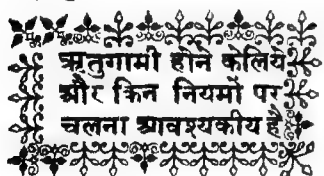 ऋतुगामी होने केलिये
और किन नियमों पर
चलना आवश्यकीय है